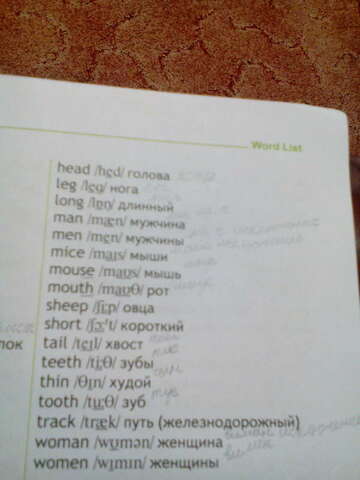 Word List
head /hed/ голова
leg /leg/ нога
long /lɒŋ/ длинный
man /mæn/ мужчина
men /men/ мужчины
mice /maɪs/ мыши
mouse /maʊs/ мышь
mouth /maʊθ/ рот
sheep /ʃiːp/ овца
short /ʃɔːt/ короткий
tail /teɪl/ хвост
лок
teeth /tiːθ/ зубы
thin /θɪn/ худой
tooth /tuːθ/ зуб
track /træk/ путь (железнодорожный)
woman /wʊmən/ женщина
women /wɪmɪn/ женщины